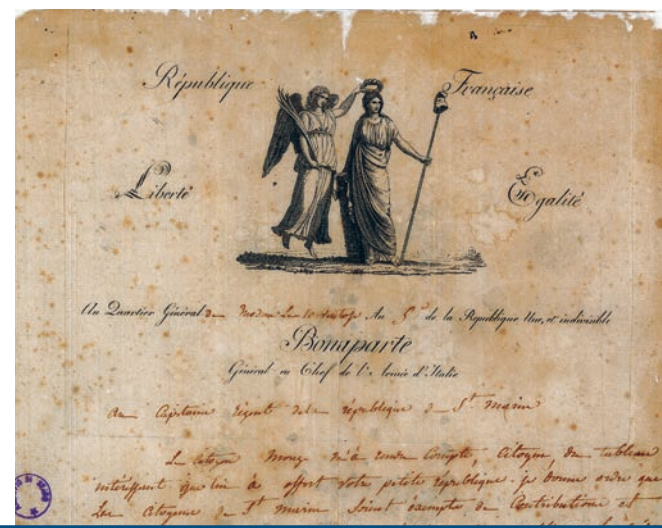 République Française
Liberté Egalité
Au Quartier Général de Modene Le 10 An 5 de la République Une, et indivisible
Bonaparte
Général en Chef de l'Armée d'Italie
au Capitaine Régent de la république de St marin
Le Citoyen Monge m'a rendu Compte, Citoyen, du tableau
interessant que lui a offert votre petite république. je donne ordre que
Les Citoyens de St marin Soient exempts de Contributions et